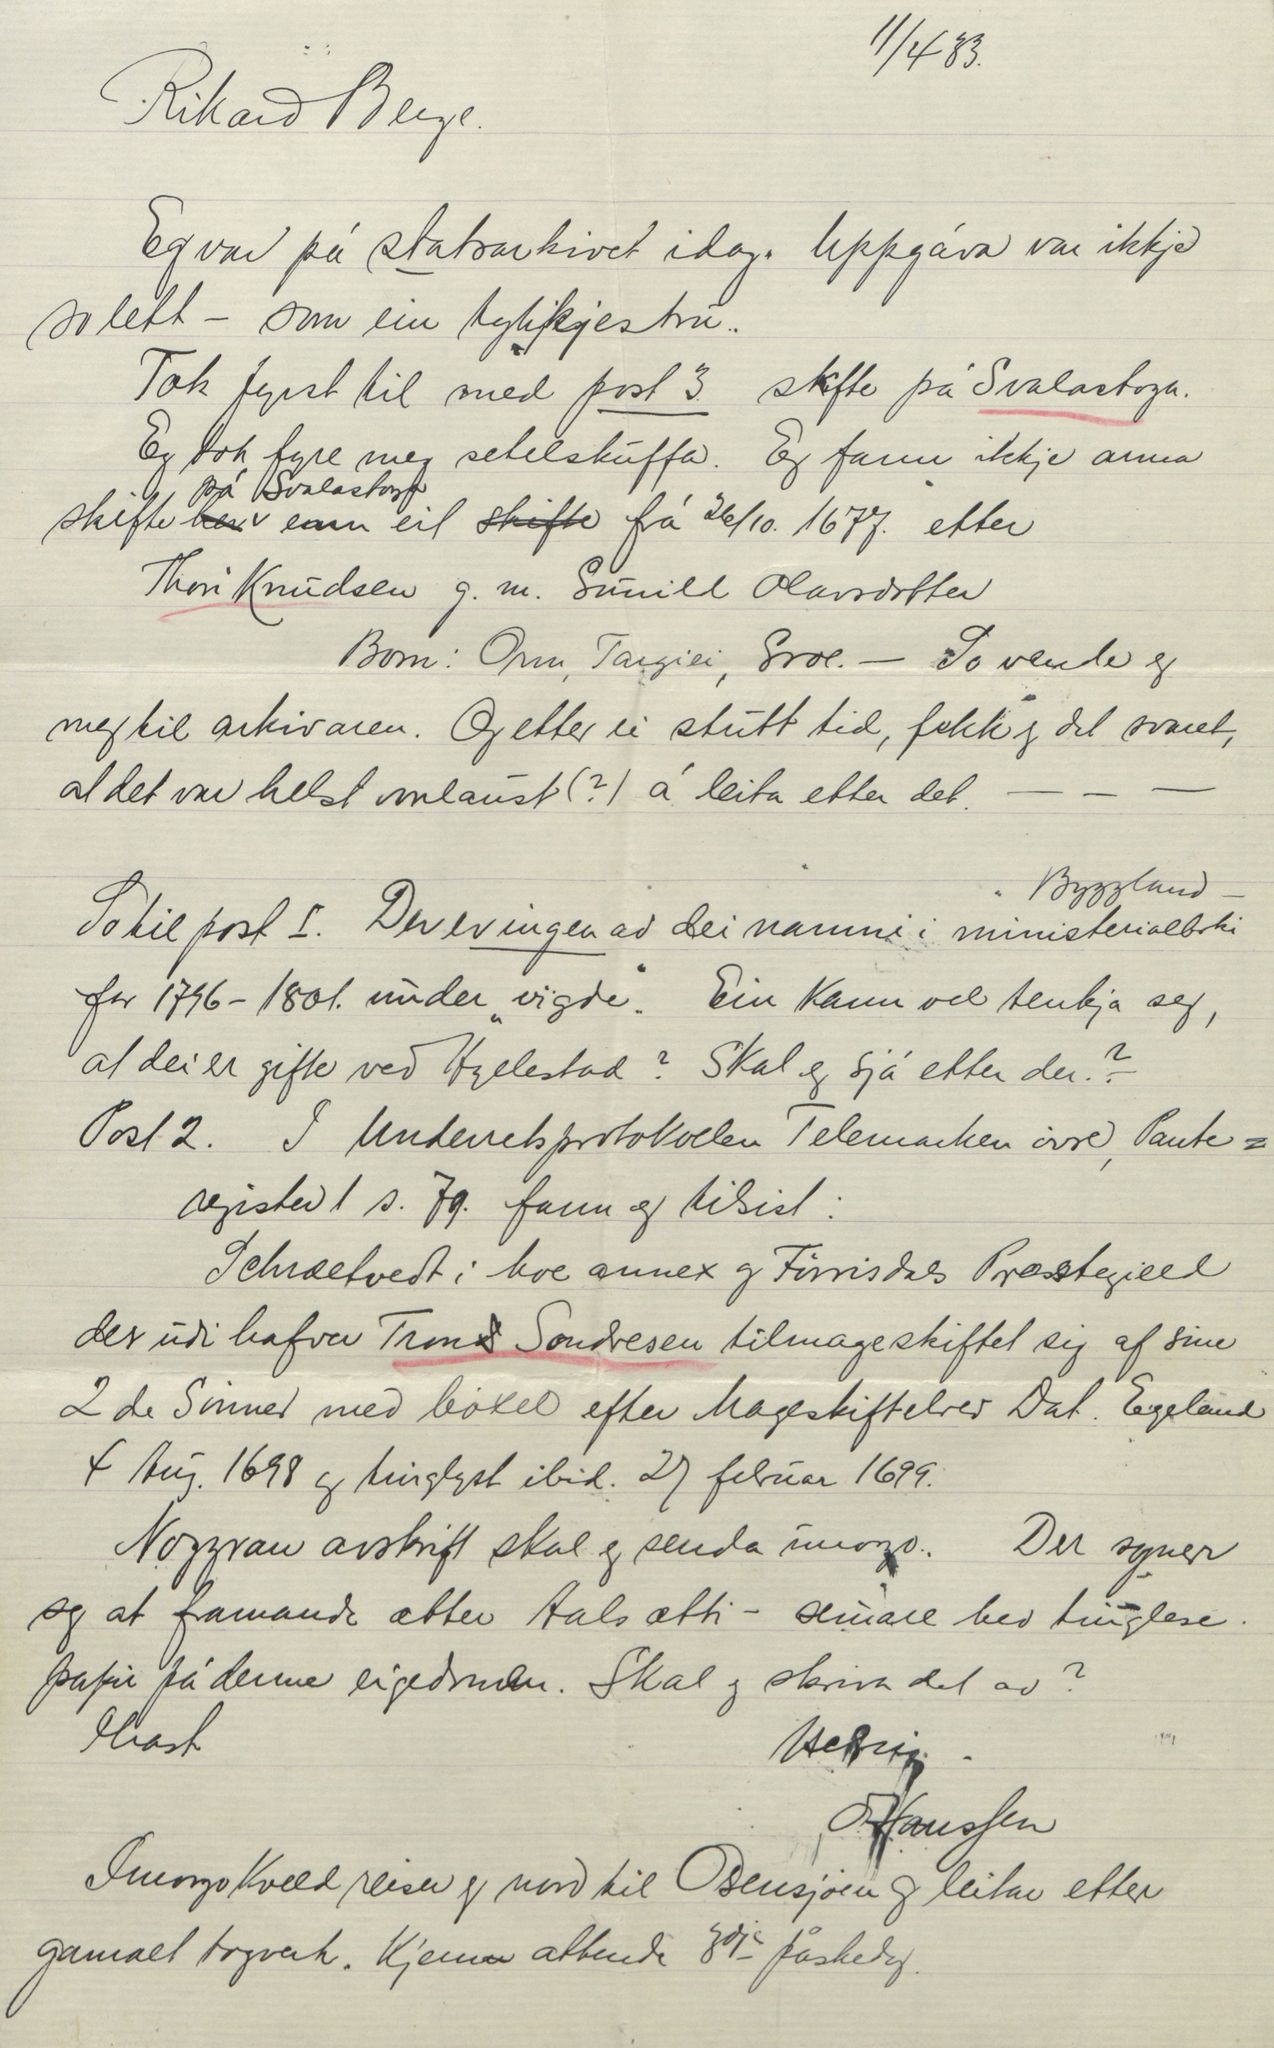 11/4 33.
Rikard Berge.
Eg var på statsarkivet idag. Uppgåva var ikkje
so lett – som ein tykkjest tru.
Tok fyrst til med post 3 skifte på Svalastoga.
Eg tok fyre meg setelskuffa. Eg fann ikkje anna
på Svalastoga
skifte her enn eit skifte frå 26/10. 1677. etter
Thor Knudsen g. m. Gunild Olavsdotter
Born: Orm, Targiei, Groe. – So vende eg
meg til arkivaren. Og etter ei stutt tid, fekk eg det svaret,
at det var helst vonlaust (?) å leita etter det. — — —
Byggland –
So til post I. Der er ingen av dei namni i ministerialboki
for 1796 – 1801. under "vigde". Ein kann vel tenkja seg,
at dei er gifte ved Hylestad? Skal eg sjå etter der.?
Post 2. I Underretsprotokollen Telemarken øvre, Pante=
register 1 s. 79. fann eg tilsist:
Schraetvedt i Moe annex og Førrisdals Præstegield
der udi hafver Trond Sondresen tilmageskiftet sig af sine
2 de Sönner med böxel efter Mageskiftebrev Dat. Egeland
4 Aug. 1698 og tinglyst ibid. 27 februar 1699.
Noggran avskrift skal eg senda imorgo. Der syner
seg at framande etter Aals ætti – seinare hev tinglese
papir på denne eigedomen. Skal eg skriva det av?
I hast Helsing.
O Hanssen
Imorgo kveld reiser eg nord til Osensjøen og leitar etter
gamalt togverk. Kjem attende 3dje påskedag.